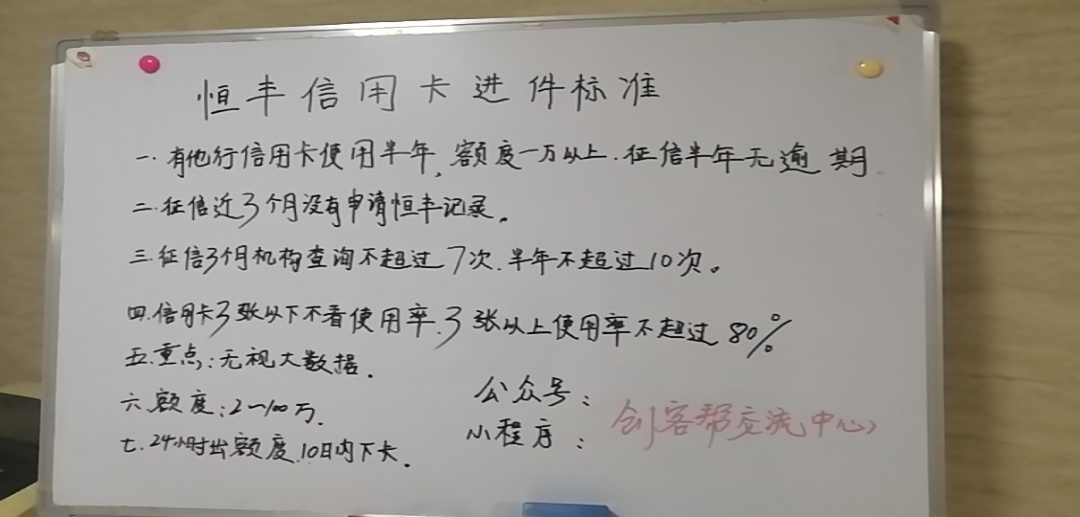 恒丰信用卡进件标准
一.有他行信用卡使用半年,额度一万以上.征信半年无逾期
二.征信近3个月没有申请恒丰记录。
三.征信3个月机构查询不超过7次.半年不超过10次。
四.信用卡3张以下不看使用率.3张以上使用率不超过80%
五.重点:无视大数据.
六.额度:2~100万.
七.24小时出额度.10日内下卡.
公众号:
小程序:
创客帮交流中心